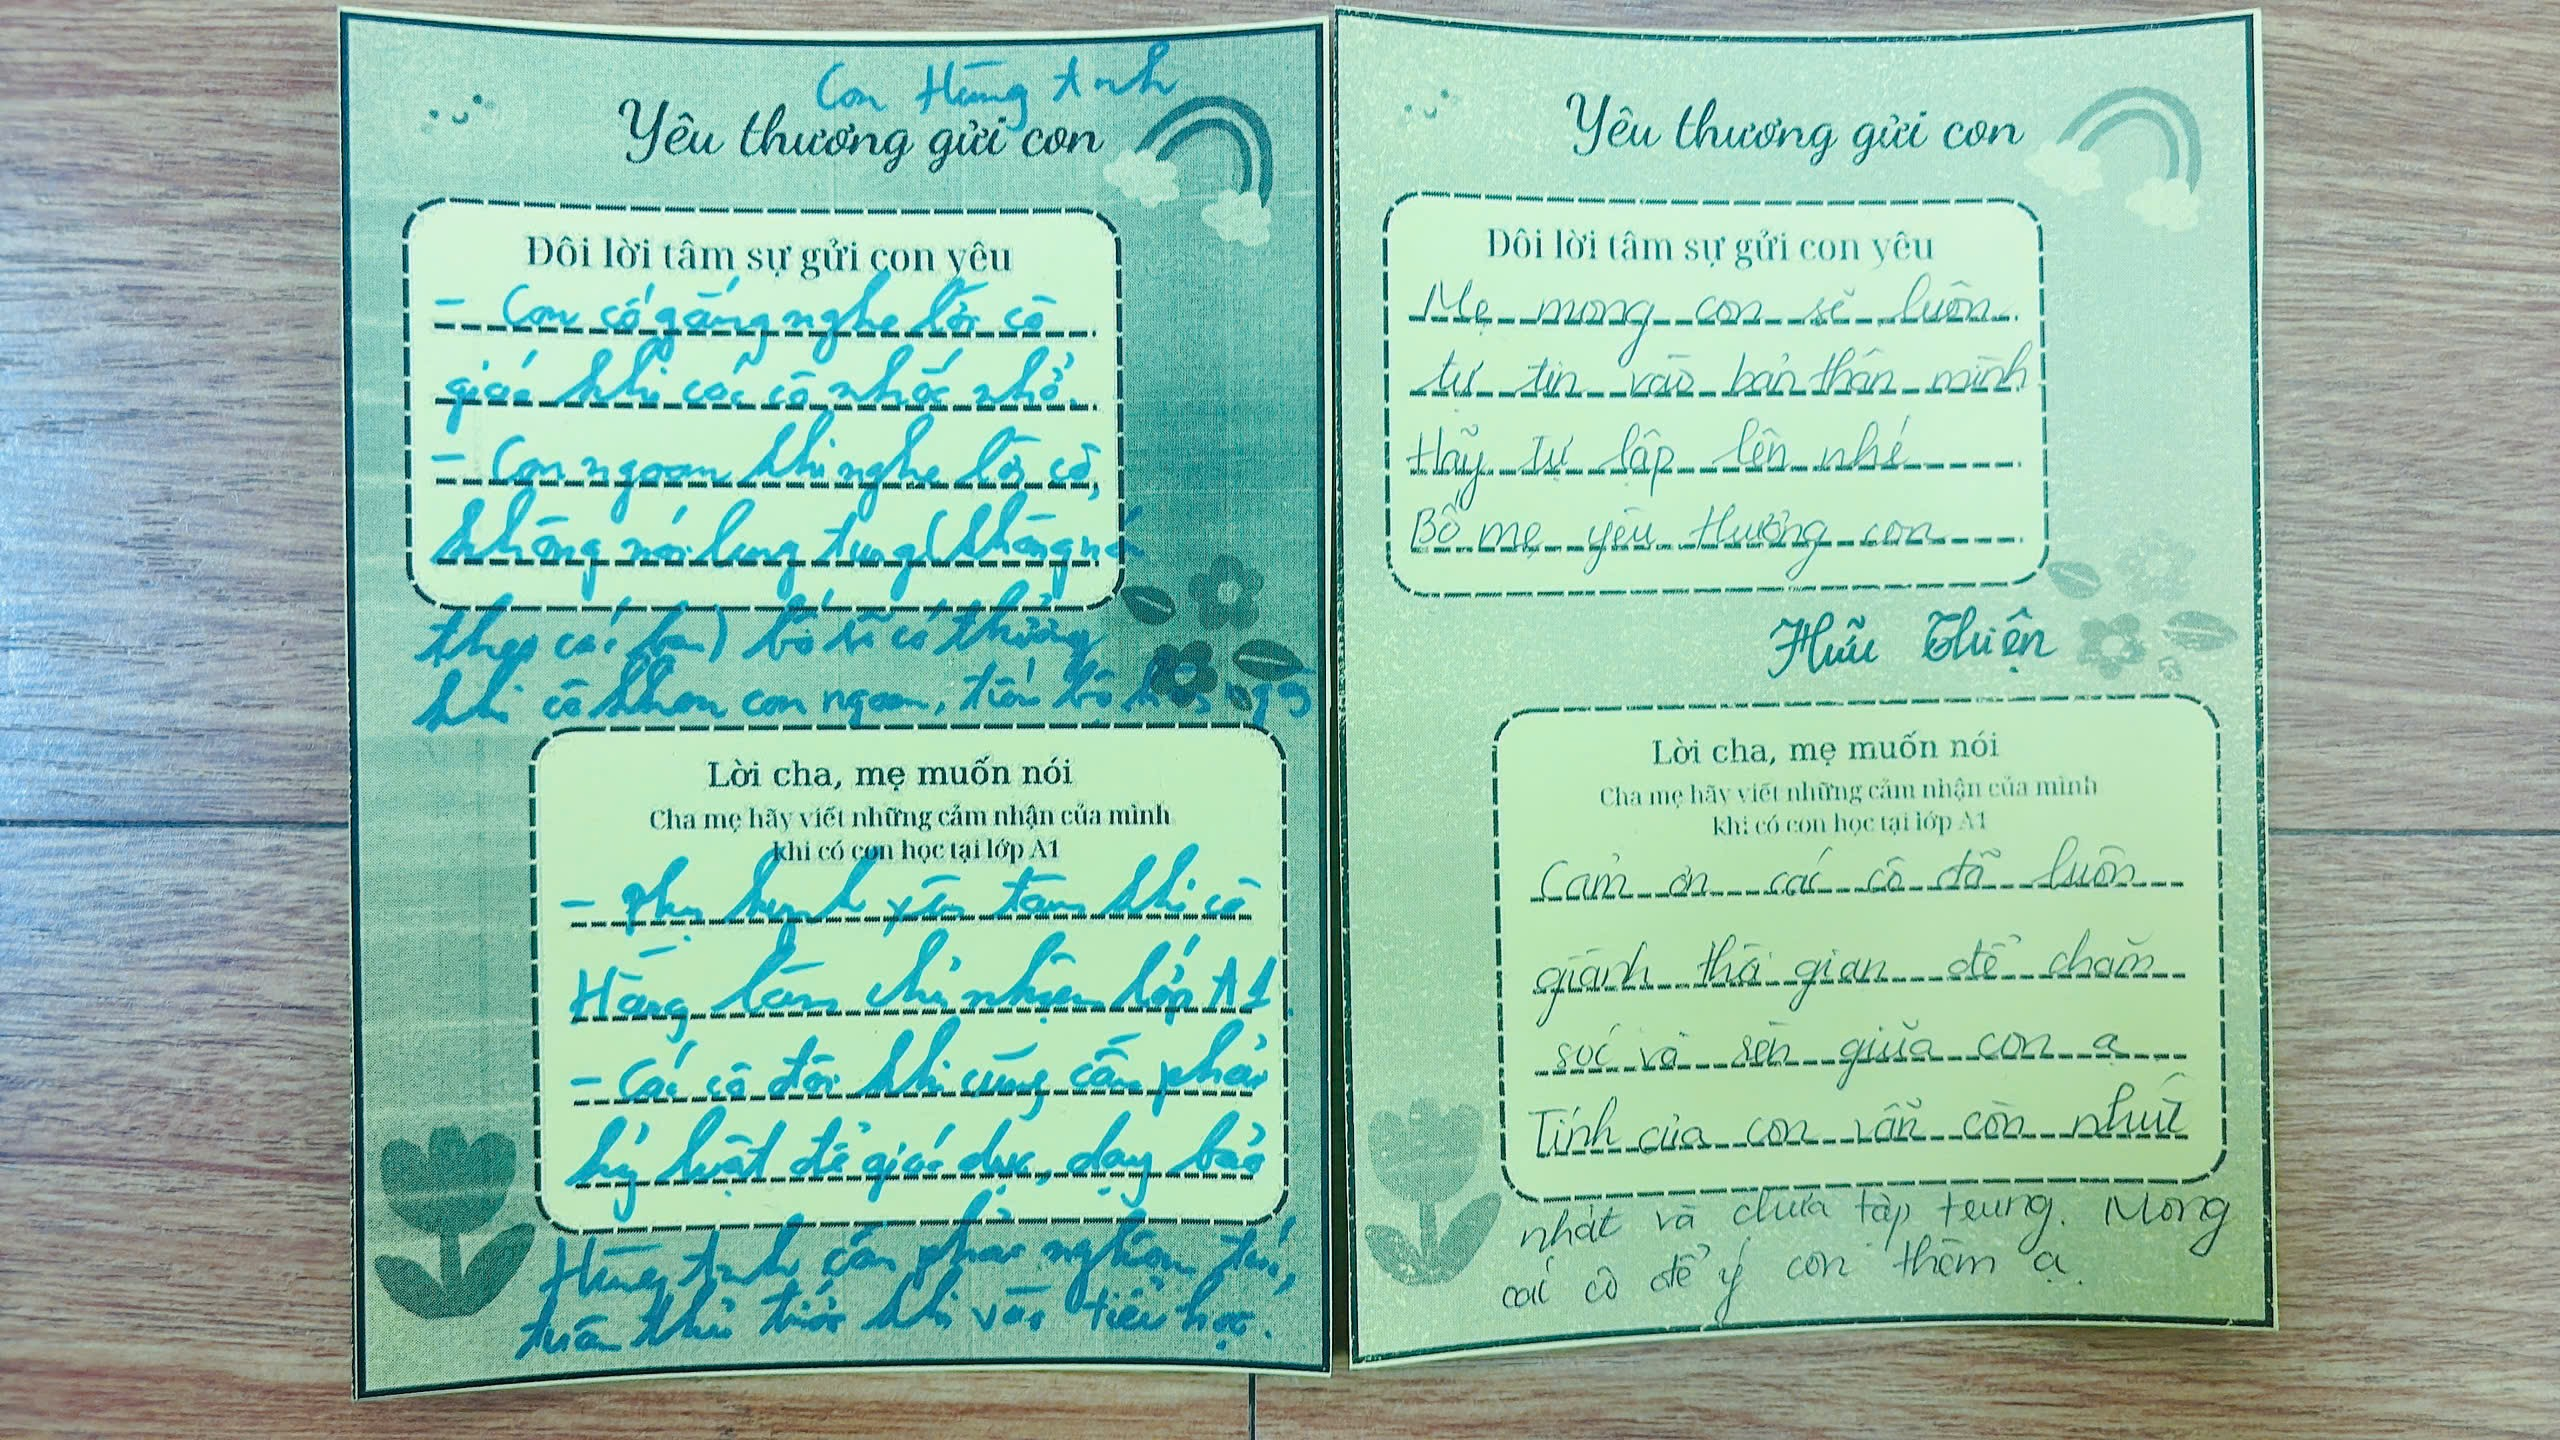 Con Hùng Anh
Yêu thương gửi con
Đôi lời tâm sự gửi con yêu
- Con cố gắng nghe lời cô
giáo khi các cô nhắc nhở.
- Con ngoan khi nghe lời cô,
không nói lung tung (không nói
theo các bạn) bố sẽ có thưởng
khi cô khen con ngoan, tiến bộ
Lời cha, mẹ muốn nói
Cha mẹ hãy viết những cảm nhận của mình
khi có con học tại lớp A1
- Phụ huynh yên tâm khi cô
Hằng làm chủ nhiệm lớp A1.
- Các cô đôi khi cũng cần phải
kỷ luật để giáo dục, dạy bảo
Hùng Anh cần phải nghiêm túc,
tuân thủ trước khi vào tiểu học.
Yêu thương gửi con
Đôi lời tâm sự gửi con yêu
Mẹ mong con sẽ luôn
tự tin vào bản thân mình
Hãy tự lập lên nhé
Bố mẹ yêu thương con
Hữu Thiện
Lời cha, mẹ muốn nói
Cha mẹ hãy viết những cảm nhận của mình
khi có con học tại lớp A1
Cảm ơn các cô đã luôn
giành thời gian để chăm
sóc và rèn giũa con ạ
Tính của con vẫn còn nhút
nhát và chưa tập trung. Mong
các cô để ý con thêm ạ.